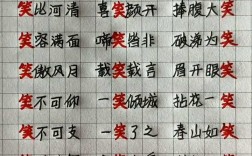 笑比河清 喜笑颜开 捧腹大笑
笑容满面 啼笑皆非 破涕为笑
笑傲风月 载笑载言 眉开眼笑
笑不可仰 一笑倾城 拈花一笑
笑不可支 一笑了之 春山如笑